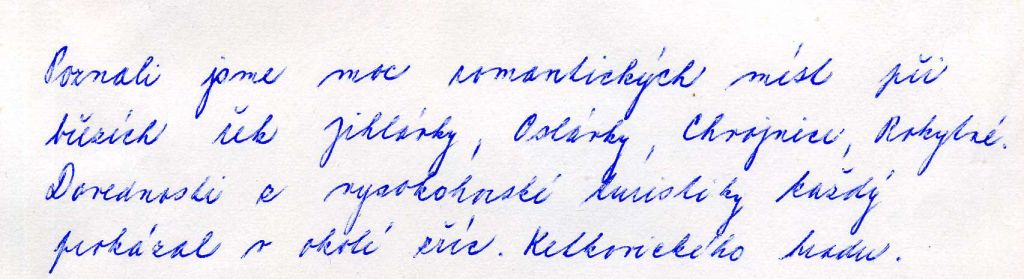 Poznali jsme moc romantických míst při
březích řek Jihlávky, Oslávky, Chvojnice, Rokytné.
Dovednosti z vysokohorské turistiky každý
prokázal v okolí zříc. Ketkovického hradu.